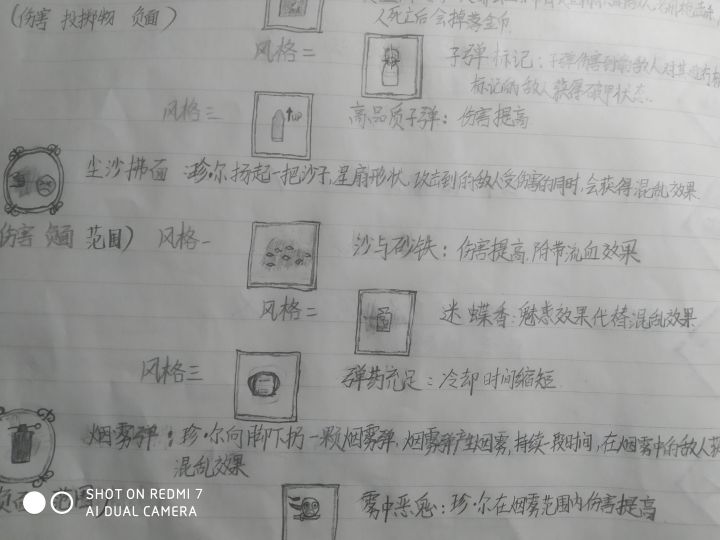 (伤害 投掷物 负面)
人死亡后会掉落金币.
风格二
子弹标记:子弹伤害到的敌人对其
标记的敌人获得破甲状态.
风格三
UP
高品质子弹:伤害提高
尘沙拂面 :珍·尔扬起一把沙子,呈扇形状,攻击到的敌人受伤害的同时,会获得混乱效果
伤害 负面 范围) 风格一
沙与砂铁:伤害提高.附带流血效果
风格二
迷蝶香:魅惑效果代替混乱效果
风格三
弹药充足:冷却时间缩短.
烟雾弹:珍·尔向脚下扔一颗烟雾弹,烟雾弹产生烟雾,持续一段时间,在烟雾中的敌人获
混乱效果
负面 范围
雾中恶鬼:珍·尔在烟雾范围内伤害提高
SHOT ON REDMI 7
AI DUAL CAMERA